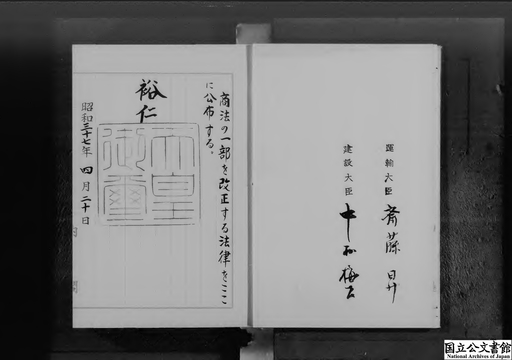 運輸大臣 斎藤昇
建設大臣 中村梅吉
商法の一部を改正する法律をここ
に公布する。
裕仁
天皇
御璽
昭和三十七年 四月二十日
国立公文書館
National Archives of Japan